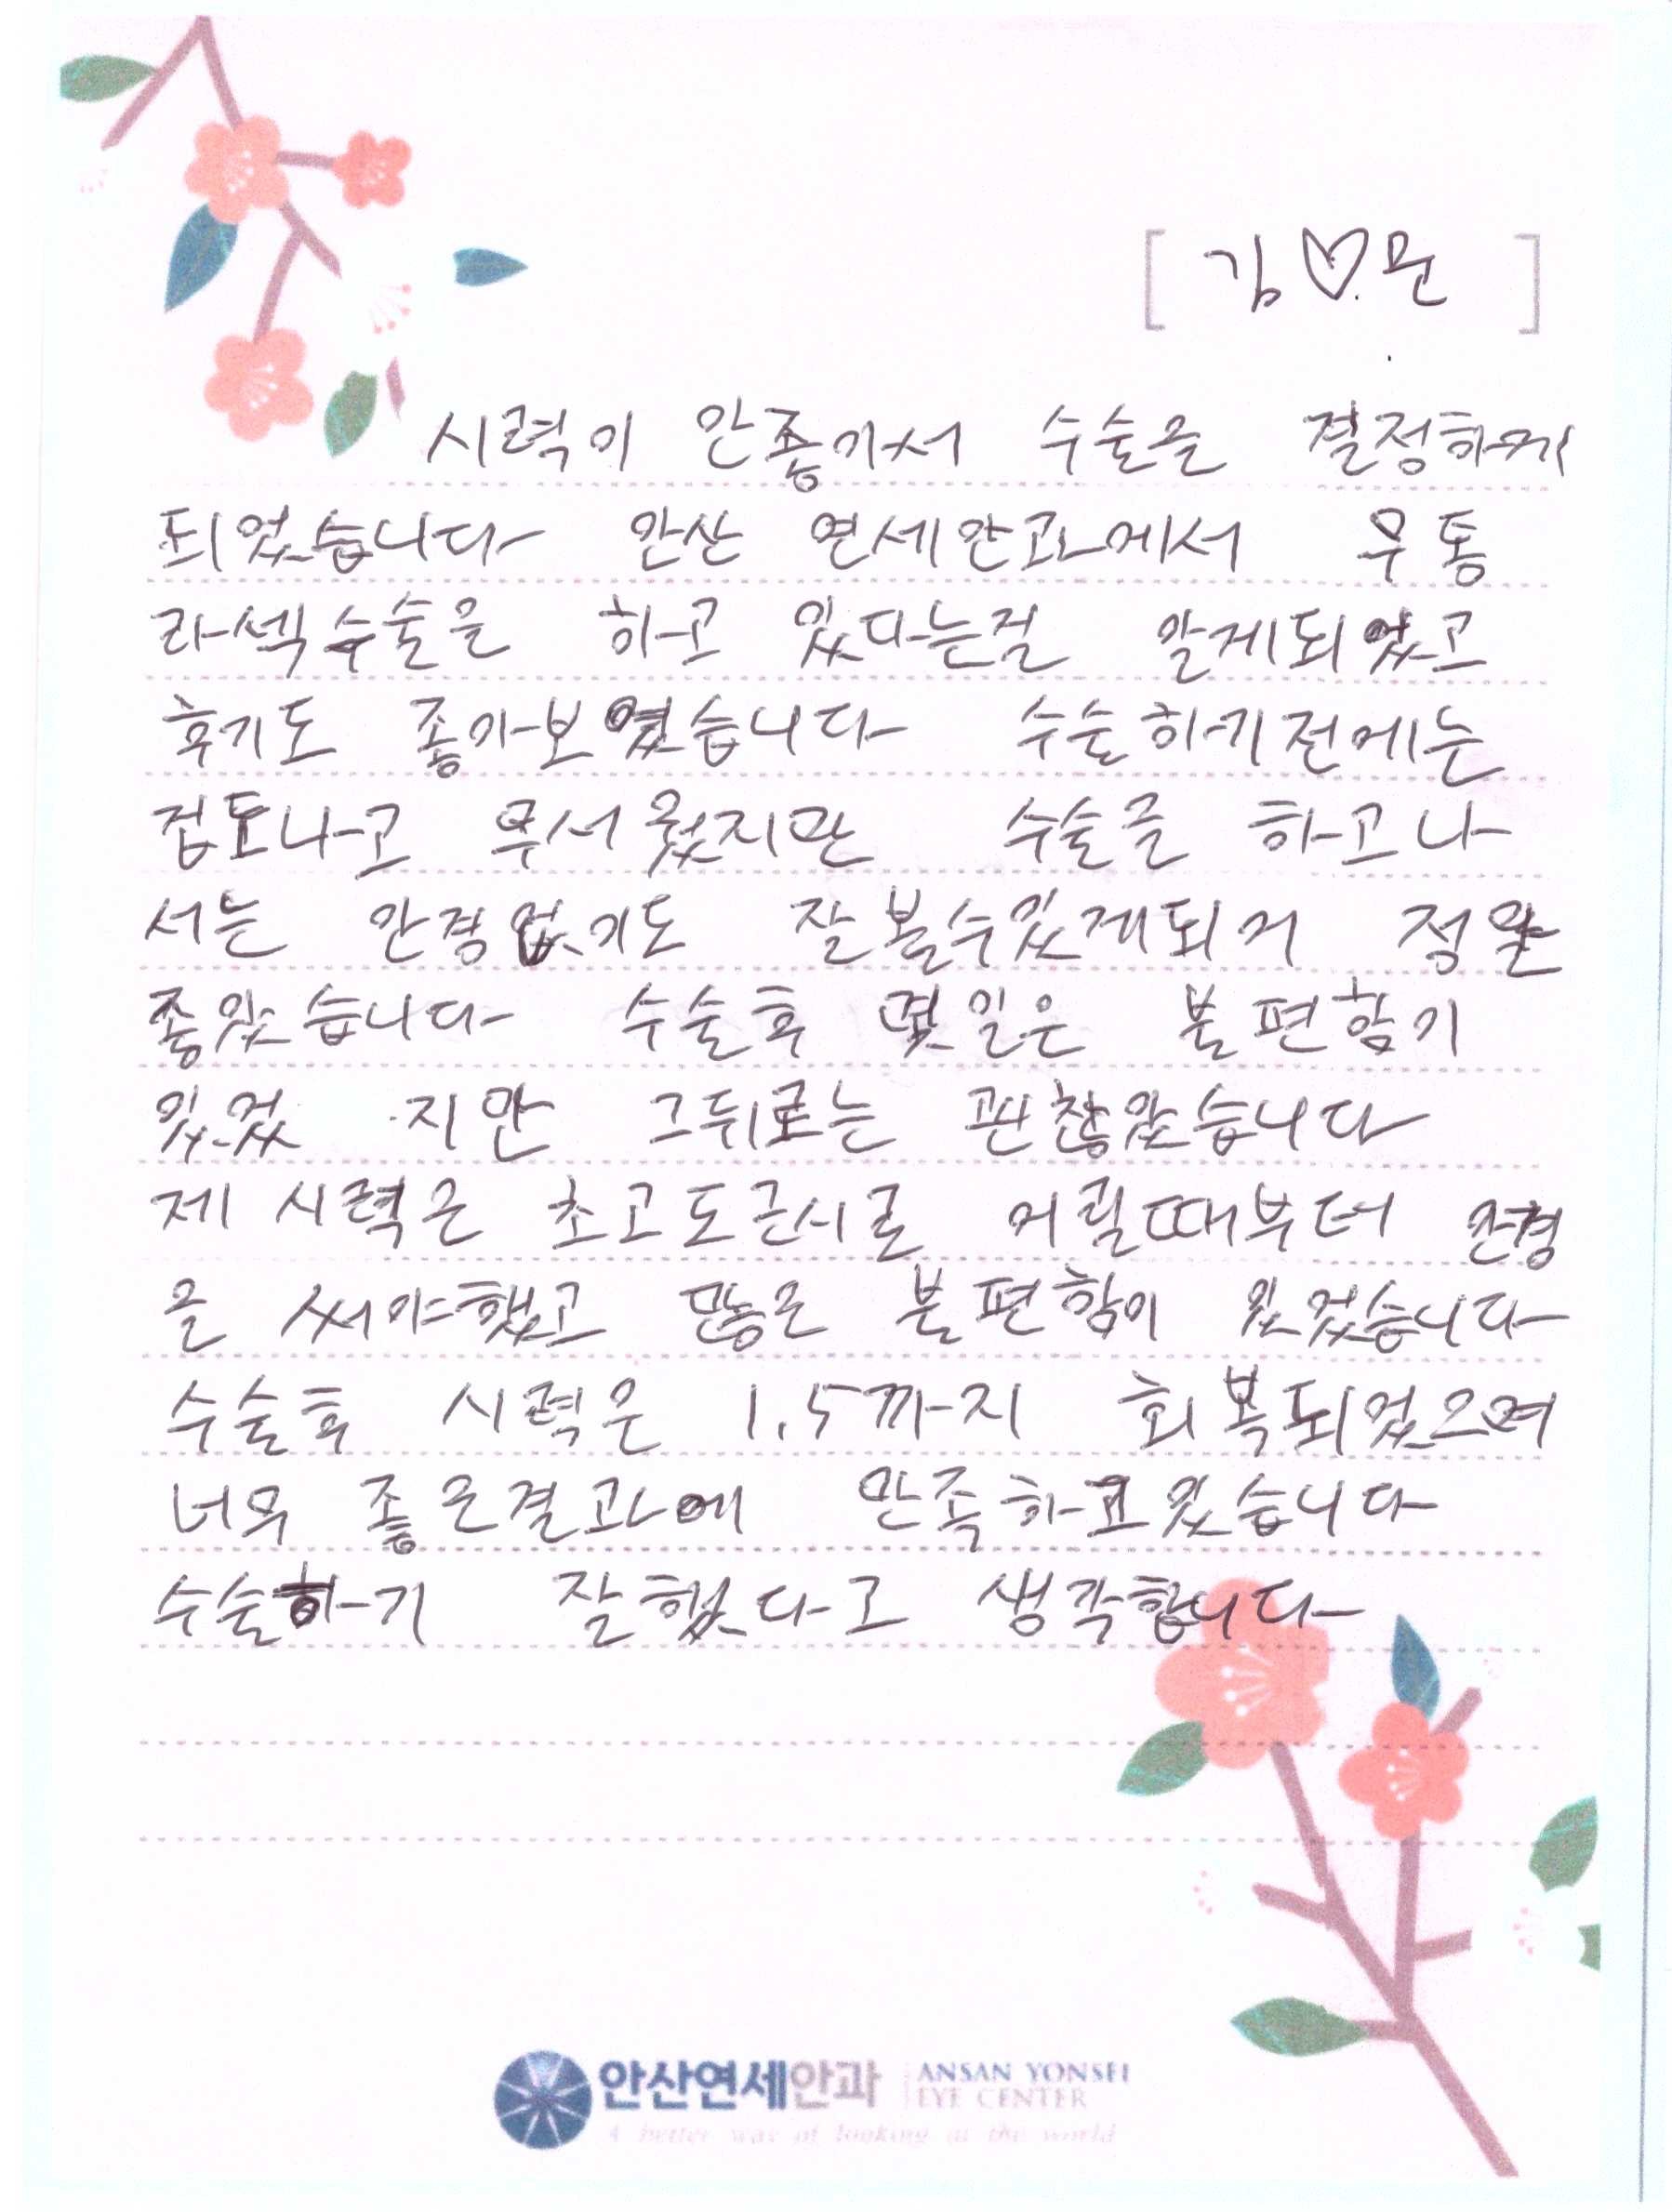 [ 김♡문 ]
시력이 안좋아서 수술을 결정하게
되었습니다 안산 연세안과에서 무통
라섹수술을 하고 있다는걸 알게되었고
후기도 좋아보였습니다 수술하기전에는
겁도나고 무서웠지만 수술을 하고나
서는 안경없이도 잘볼수있게되어 정말
좋았습니다 수술후 몇일은 불편함이
있었 지만 그뒤로는 괜찮았습니다
제 시력은 초고도근시로 어릴때부터 안경
을 써야했고 많은 불편함이 있었습니다
수술후 시력은 1.5까지 회복되었으며
너무 좋은결과에 만족하고있습니다
수술하기 잘했다고 생각합니다
안산연세안과 ANSAN YONSEI
EYE CENTER
A better way of looking at the world